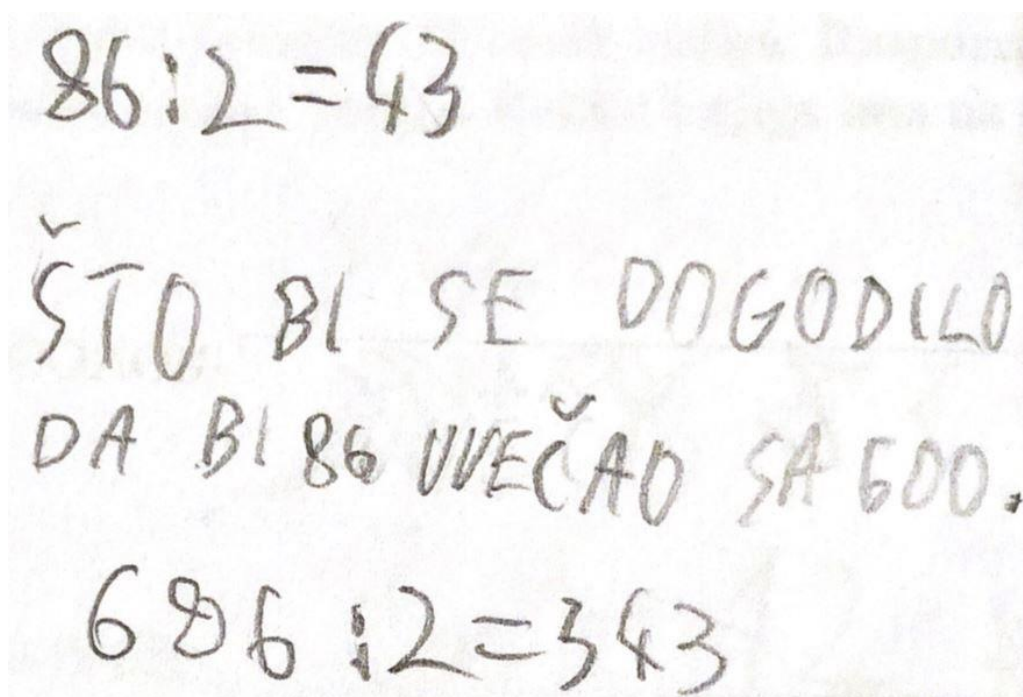 86:2=43
ŠTO BI SE DOGODILO
DA BI 86 UVEČAO SA 600.
686:2=343